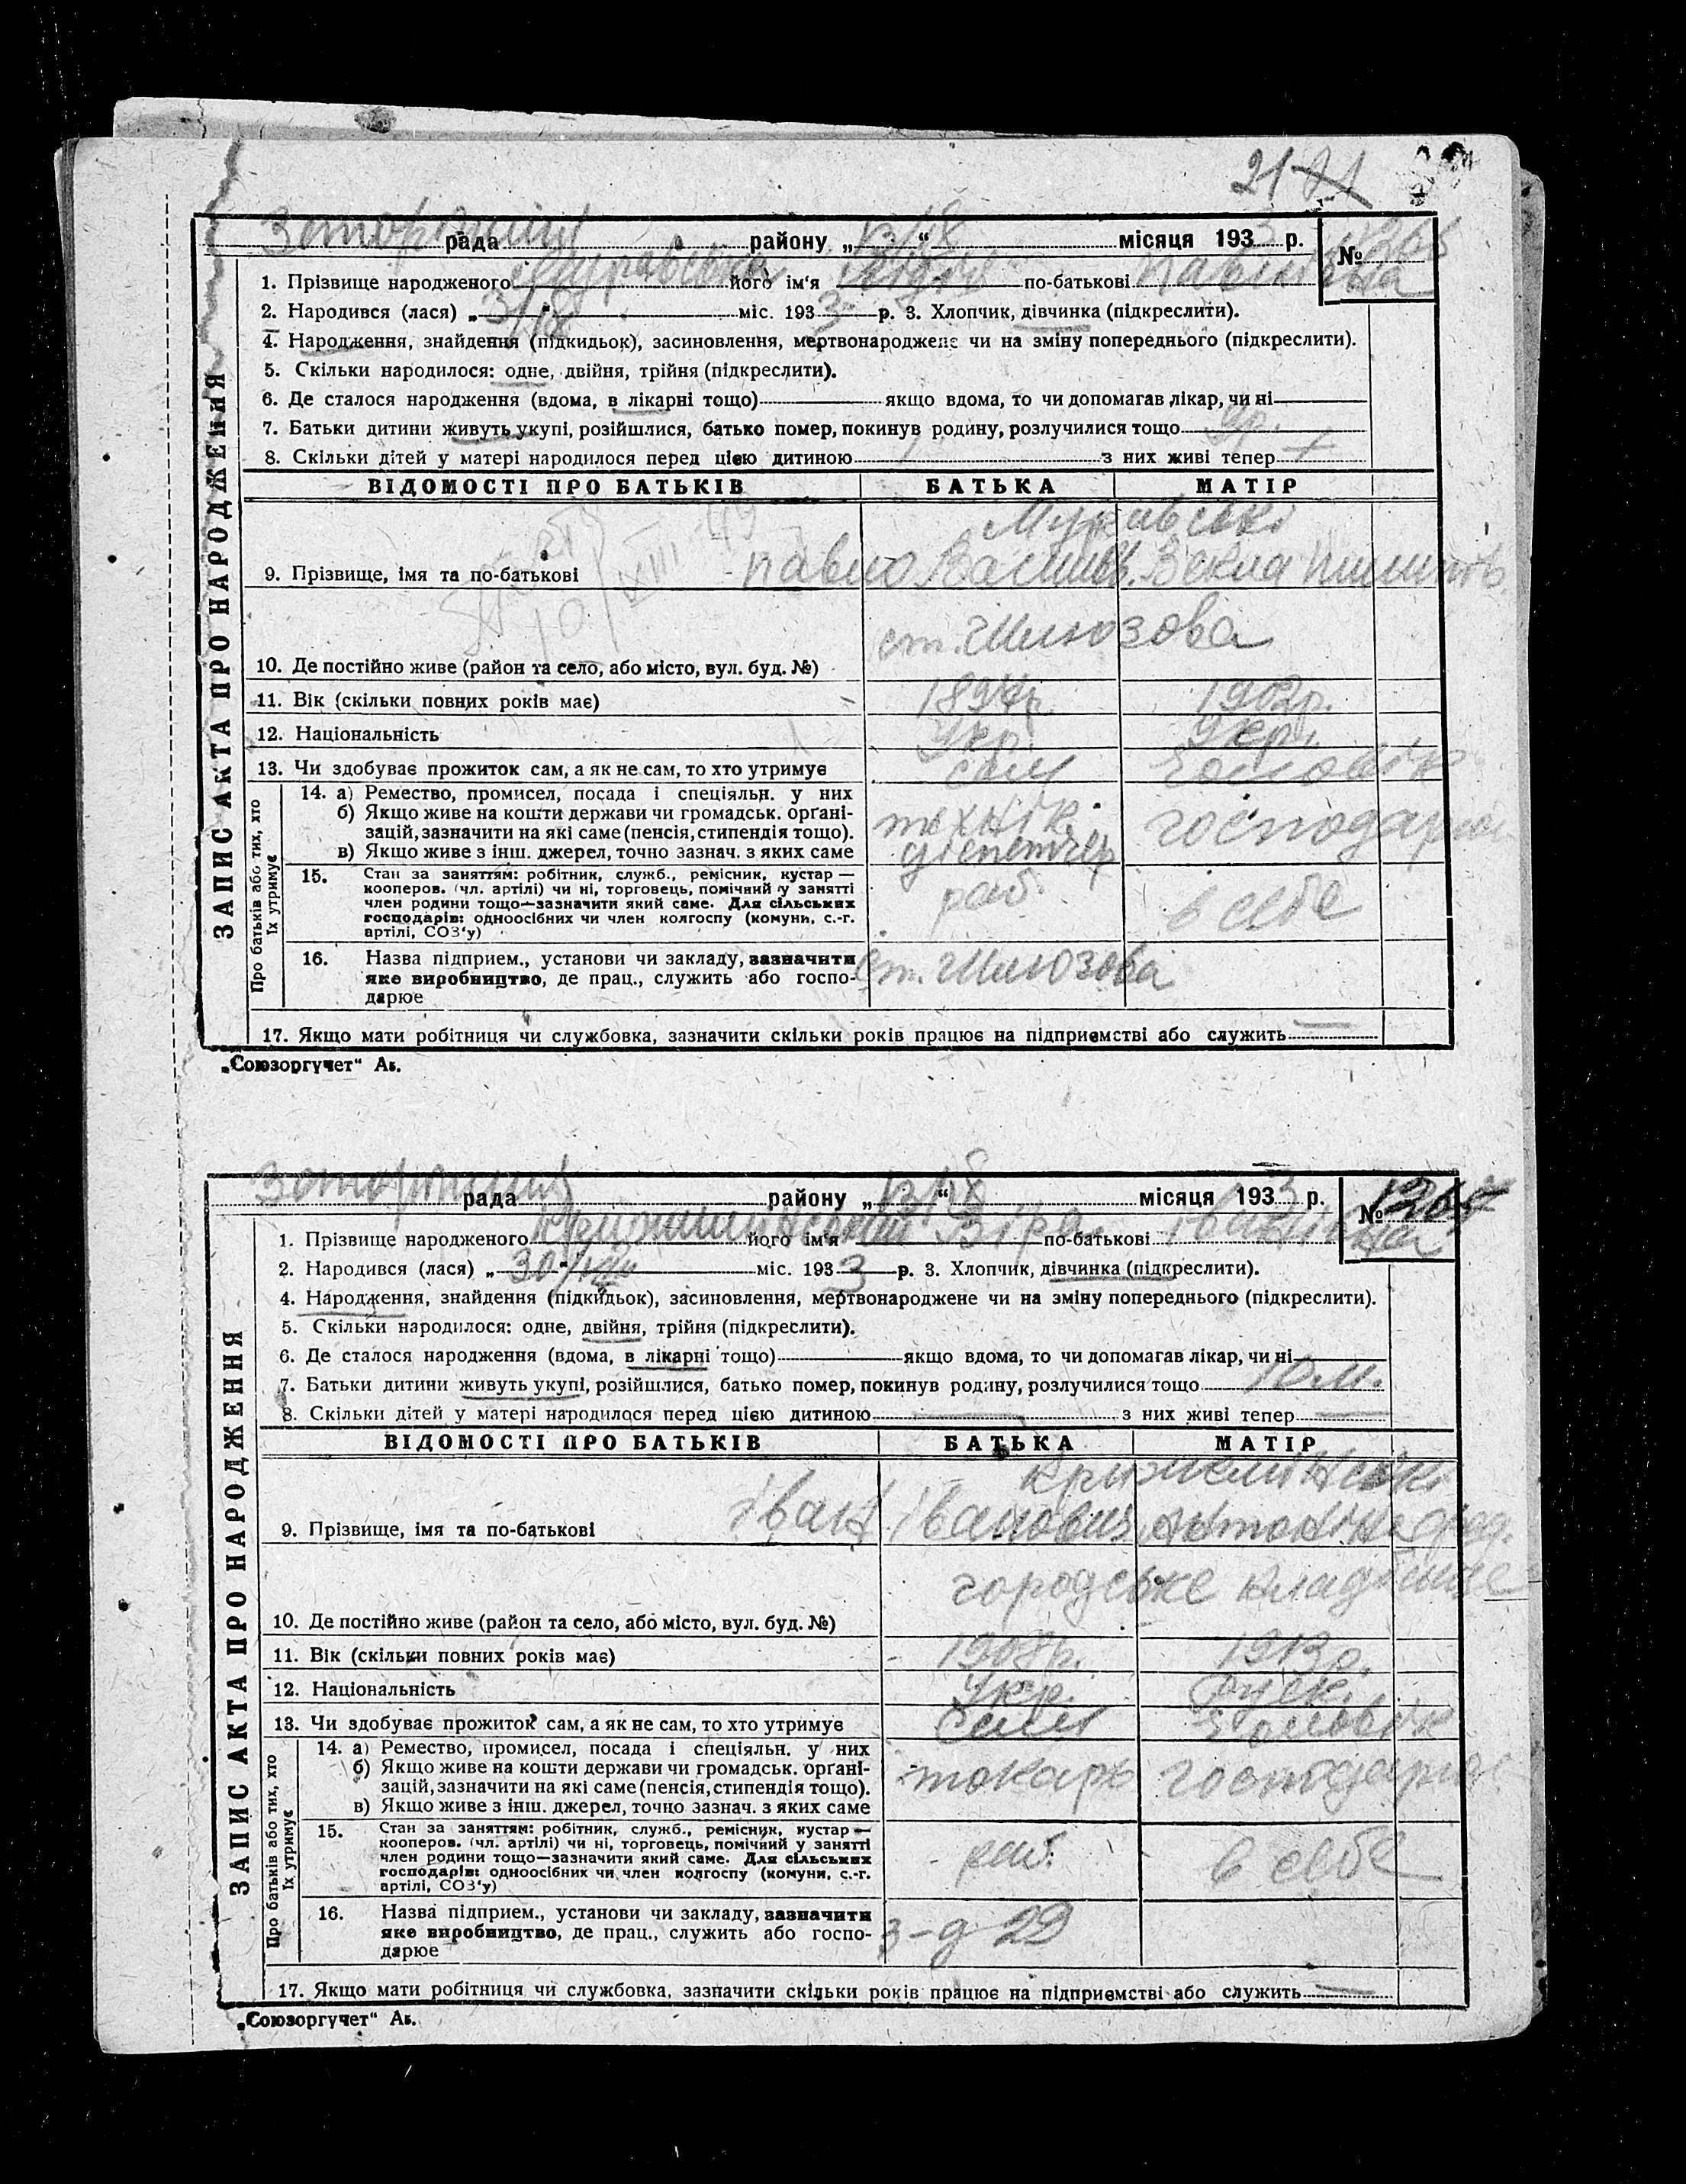 21
рада району „13/ІХ“ місяця 1933 р. №
1. Прізвище народженого його ім'я по-батькові Павлівна
2. Народився (лася) „ “ міс. 1933 р. 3. Хлопчик, дівчинка (підкреслити).
4. Народження, знайдення (підкидьок), засиновлення, мертвонароджене чи на зміну попереднього (підкреслити).
5. Скільки народилося: одне, двійня, трійня (підкреслити).
6. Де сталося народження (вдома, в лікарні тощо) якщо вдома, то чи допомагав лікар, чи ні
7. Батьки дитини живуть укупі, розійшлися, батько помер, покинув родину, розлучилися тощо 9р.
8. Скільки дітей у матері народилося перед цією дитиною з них живі тепер
ЗАПИС АКТА ПРО НАРОДЖЕННЯ
ВІДОМОСТІ ПРО БАТЬКІВ БАТЬКА МАТІР
Муравські
9. Прізвище, імя та по-батькові Павло Васильов. Векла
10. Де постійно живе (район та село, або місто, вул. буд. №) ст. Шлюзова
11. Вік (скільки повних років має) 1902р.
12. Національність Укр. Укр.
13. Чи здобуває прожиток сам, а як не сам, то хто утримує сам чоловік
Про батьків або тих, хто їх утримує
14. а) Ремество, промисел, посада і спеціяльн. у них
б) Якщо живе на кошти держави чи громадськ. орґані-
зацій, зазначити на які саме (пенсія, стипендія тощо).
в) Якщо живе з інш. джерел, точно зазнач. з яких саме
технік диспетчер
15. Стан за заняттям: робітник, служб., ремісник, кустар —
кооперов. (чл. артілі) чи ні, торговець, помічний у занятті
член родини тощо—зазначити який саме. Для сільських
господарів: одноосібних чи член колгоспу (комуни, с.-г.
артілі, СОЗ'у)
раб. в себе
16. Назва підприєм., установи чи закладу, зазначити
яке виробництво, де прац., служить або госпо-
дарює
ст. Шлюзова
17. Якщо мати робітниця чи службовка, зазначити скільки років працює на підприємстві або служить
„Союзоргучет“ Аб.
рада району „13/ІХ“ місяця 1933 р. №
1. Прізвище народженого його ім'я Віра по-батькові Іванівна
2. Народився (лася) „30 “ міс. 1933 р. 3. Хлопчик, дівчинка (підкреслити).
4. Народження, знайдення (підкидьок), засиновлення, мертвонароджене чи на зміну попереднього (підкреслити).
5. Скільки народилося: одне, двійня, трійня (підкреслити).
6. Де сталося народження (вдома, в лікарні тощо) якщо вдома, то чи допомагав лікар, чи ні
7. Батьки дитини живуть укупі, розійшлися, батько помер, покинув родину, розлучилися тощо 10 м.
8. Скільки дітей у матері народилося перед цією дитиною з них живі тепер
ЗАПИС АКТА ПРО НАРОДЖЕННЯ
ВІДОМОСТІ ПРО БАТЬКІВ БАТЬКА МАТІР
9. Прізвище, імя та по-батькові Іван Іванович Антоніна
10. Де постійно живе (район та село, або місто, вул. буд. №) городське кладбище
11. Вік (скільки повних років має) 1913р.
12. Національність Укр. Руск.
13. Чи здобуває прожиток сам, а як не сам, то хто утримує сам чоловік
Про батьків або тих, хто їх утримує
14. а) Ремество, промисел, посада і спеціяльн. у них
б) Якщо живе на кошти держави чи громадськ. орґані-
зацій, зазначити на які саме (пенсія, стипендія тощо).
в) Якщо живе з інш. джерел, точно зазнач. з яких саме
токарь
15. Стан за заняттям: робітник, служб., ремісник, кустар —
кооперов. (чл. артілі) чи ні, торговець, помічний у занятті
член родини тощо—зазначити який саме. Для сільських
господарів: одноосібних чи член колгоспу (комуни, с.-г.
артілі, СОЗ'у)
раб. в себе
16. Назва підприєм., установи чи закладу, зазначити
яке виробництво, де прац., служить або госпо-
дарює
з-д 29
17. Якщо мати робітниця чи службовка, зазначити скільки років працює на підприємстві або служить
„Союзоргучет“ Аб.